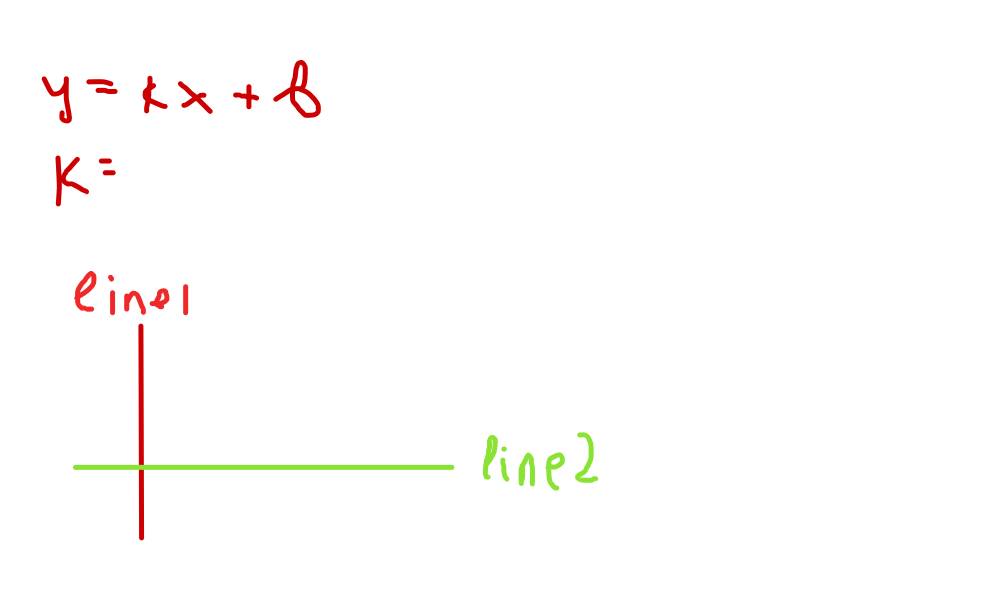 y = kx + b
k =
line1
line2